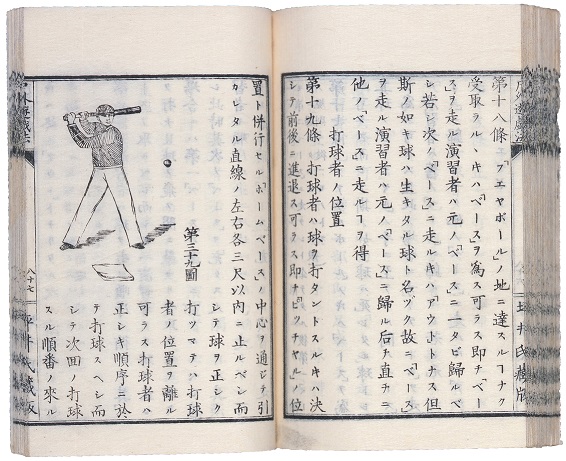 第十八條 「フエヤボール」ノ地ニ達スルヿナク
受取ラルヽキハ「ベース」ヲ爲ス可ラス即チ「ベー
ス」ヲ走ル演習者ハ元ノ「ベース」ニ一タビ歸ルベ
シ若シ次ノ「ベース」ニ走ルキハ「アウト」トナス但
斯ノ如キ球ハ生キタル球ト名ヅク故ニ「ベース」
ヲ走ル演習者ハ元ノ「ベース」ニ歸ル后チ直チニ
他ノ「ベース」ニ走ルヿヲ得
打球者ノ位置
第十九條 打球者ハ球ヲ打タントスルキハ決
シテ前後ニ進退ス可ラス即チ「ピツチヤル」ノ位
坪井氏藏版
置ト併行セルホームベースノ中心ヲ通ジテ引
カレタル直線ノ左右各三尺以内ニ止ルベシ而
第三十九圖
シテ球ヲ正シク
打ツマテハ打球
者ノ位置ヲ離ル
可ラス打球者ハ
正シキ順序ニ於
テ打球スヘシ而
シテ次回ノ打球
スル順番ノ來ル
八十七
坪井氏藏版